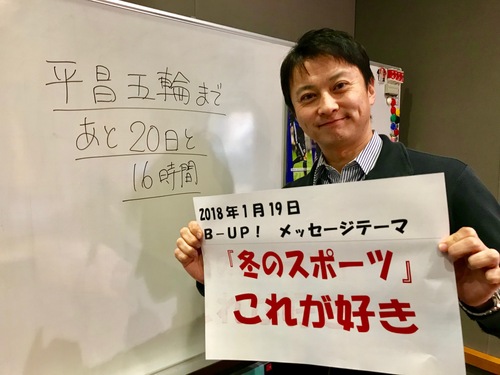 平昌五輪まで
あと20日と
16時間
2018年1月19日
B-UP! メッセージテーマ
『冬のスポーツ』
これが好き